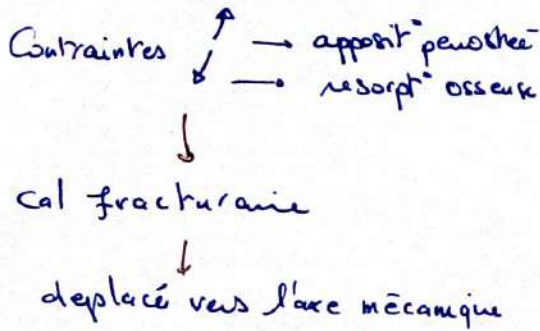 Contraintes ↗ → apposit° periostée
↙ → resorpt° osseuse
↓
Cal fracturaire
↓
deplacé vers l'axe mécanique